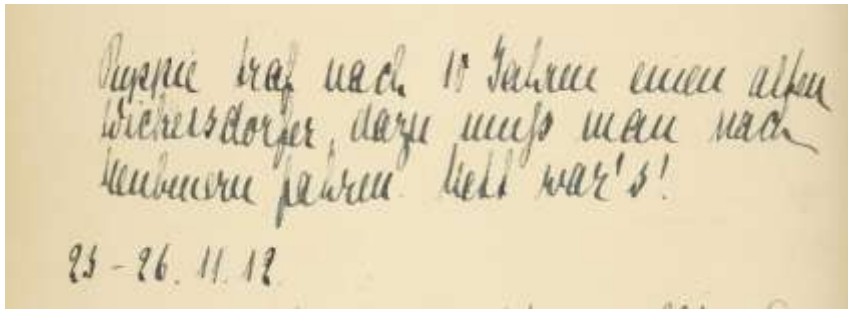 Puppie traf nach 10 Jahren einen alten
Wickersdorfer, dazu muß man nach
fahren. Nett war's!
25-26. 11. 12